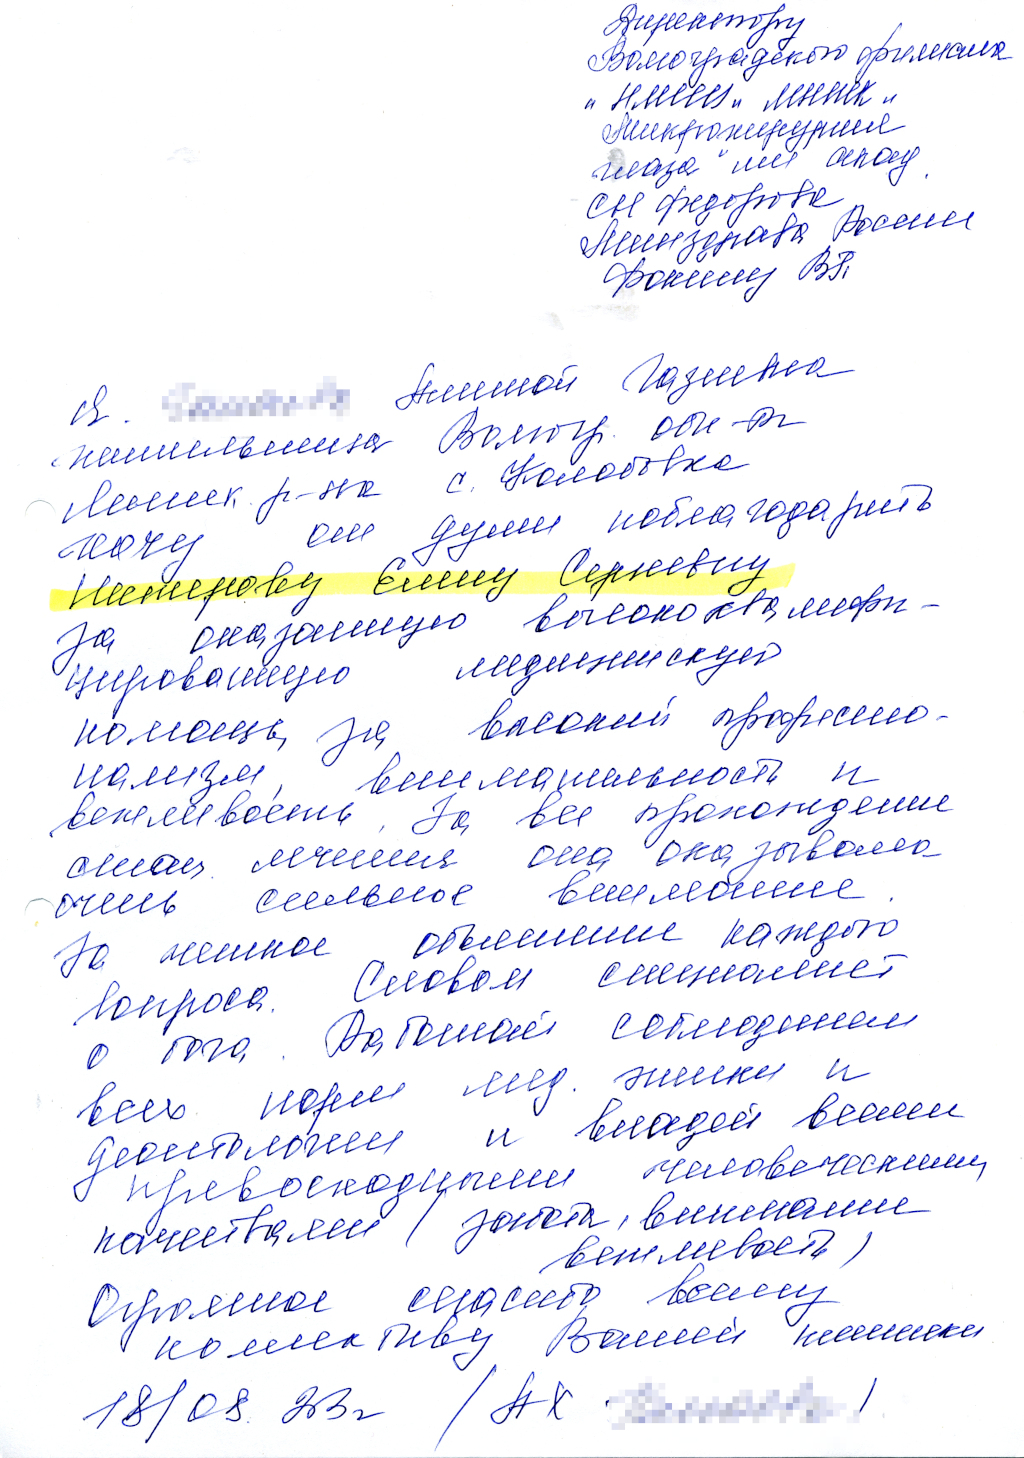 Директору
Волгоградского филиала
"НМИЦ" МНТК "
Микрохирургия
глаза" им акад
СН Федорова
Минздрава России
Фокину ВП.
Я.
жительница Волгогр. обл-ти
Ленинск. р-на с. Колобовка
хочу от души поблагодарить
Сергеевну
за оказанную высококвалифи-
цированную медицинскую
помощь, за высокий професио-
нализм, внимательность и
вежливость. За все прохождение
стац. лечения она оказывала
очень сильное внимание.
За четкое объяснение каждого
вопроса. Словом специалист
о бога. Работой соблюдением
всех норм мед. этики и
деонтологии и владей всеми
превосходными человеческими
качествами (забота, внимание
вежливость)
Огромное спасибо всему
коллективу Вашей клиники
18/08. 23г (АХ )